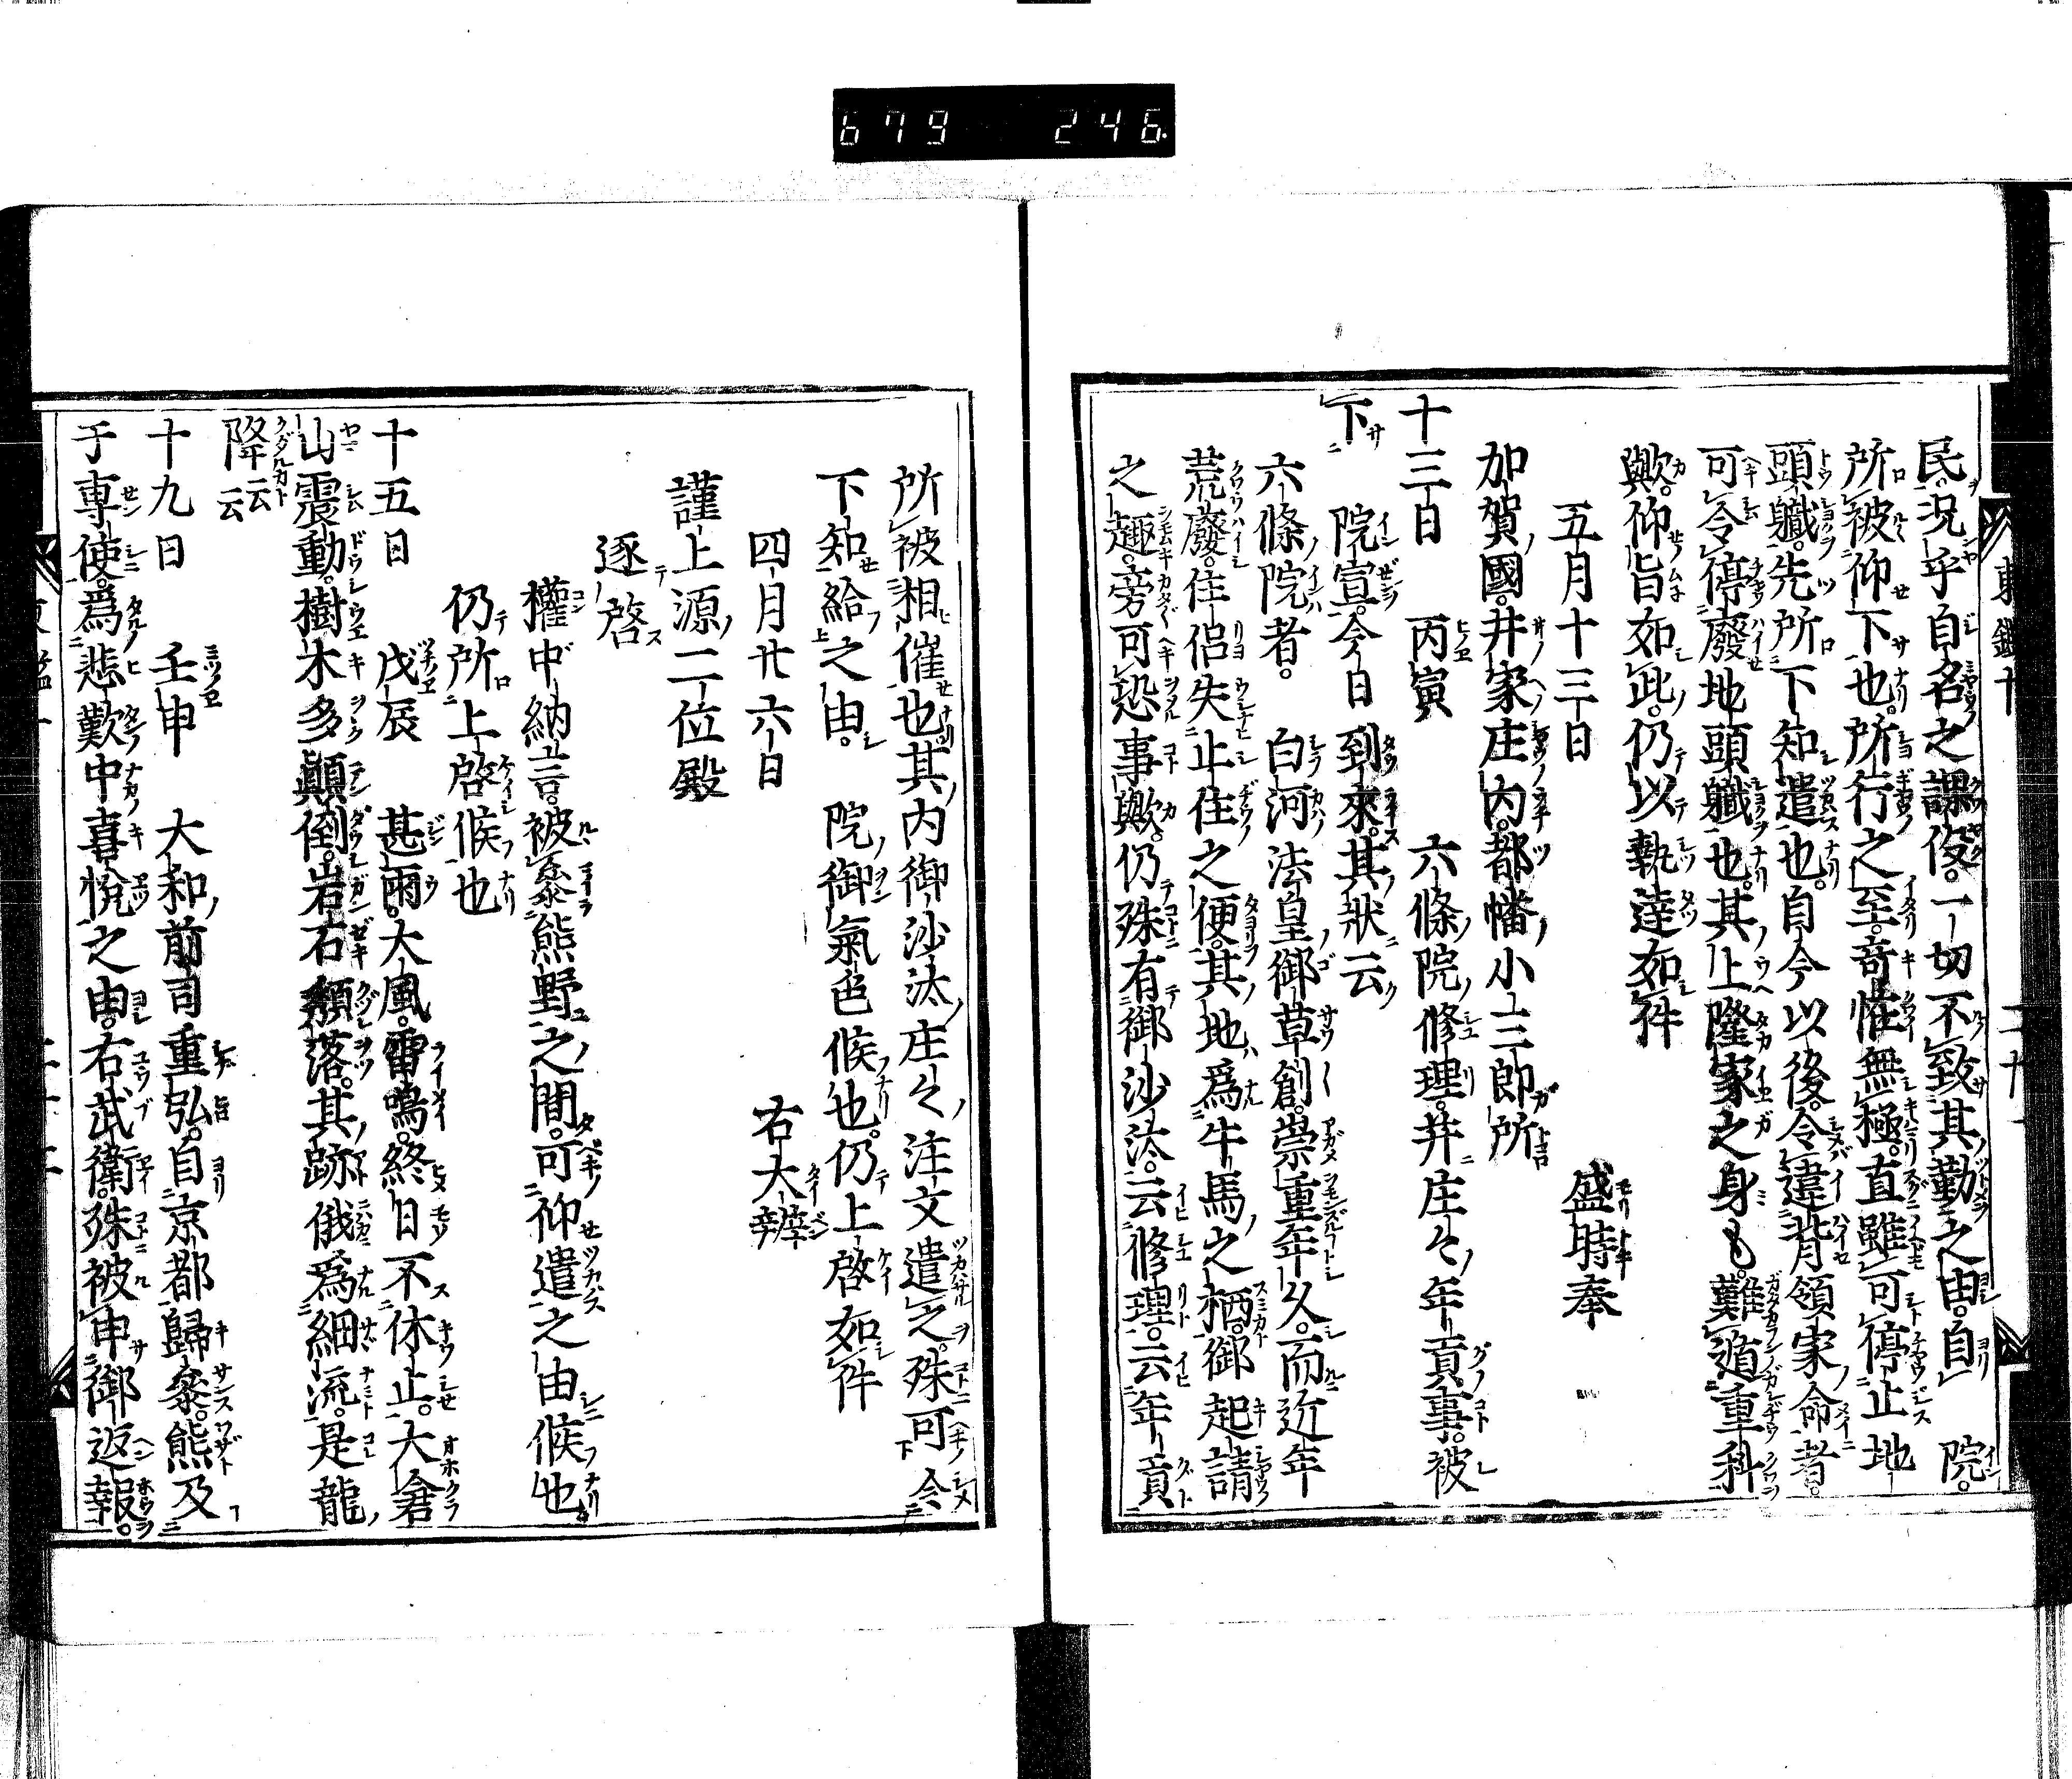 679 246.
民。況乎自名之課役。一切不致其勤之由。自 院。
所被仰下也。所行之至。奇恠無極。直雖可停止地
頭職。先所下知遣也。自今以後。令違背領家命者。
可令停廢地頭職也。其上隆家之身も。難遁重科
歟。仰旨如此。仍以執達如件
五月十三日 盛時奉
加賀國。井家庄内。都幡小三郎所
十三日 丙寅 六條院修理。并庄々年貢事。被
下 院宣。今日到來。其狀云
六條院者。 白河法皇御草創。崇重年久。而近年
荒廢。住侶失止住之便。其地爲牛馬之栖。御起請
之趣。旁可恐事歟。仍殊有御沙汰。云修理。云年貢
所被相催也。其内御沙汰庄々注文遣之。殊可令
下知給之由。 院御氣色候也。仍上啓如件
四月廿六日 右大辨
謹上源二位殿
逐啓
權中納言。被參熊野之間。可仰遣之由候也
仍所上啓候也
十五日 戊辰 甚雨。大風。雷鳴。終日不休止。大倉
山震動。樹木多顚倒。岩石頽落。其跡俄爲細流。是龍
降云云
十九日 壬申 大和前司重弘。自京都歸參。熊及
于專使。爲悲歎中喜悅之由。右武衛。殊被申御返報。